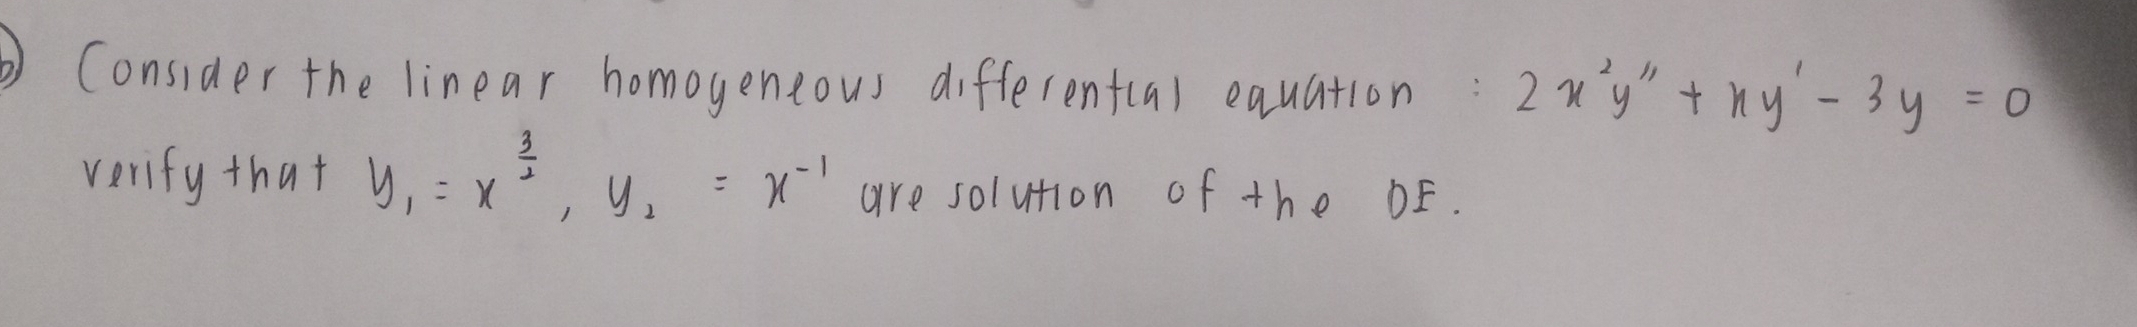 b) Consider the linear homogeneous differential equation : 2x²y" + xy' - 3y = 0
verify that y₁ = x^(3/2), y₂ = x⁻¹ are solution of the DE.